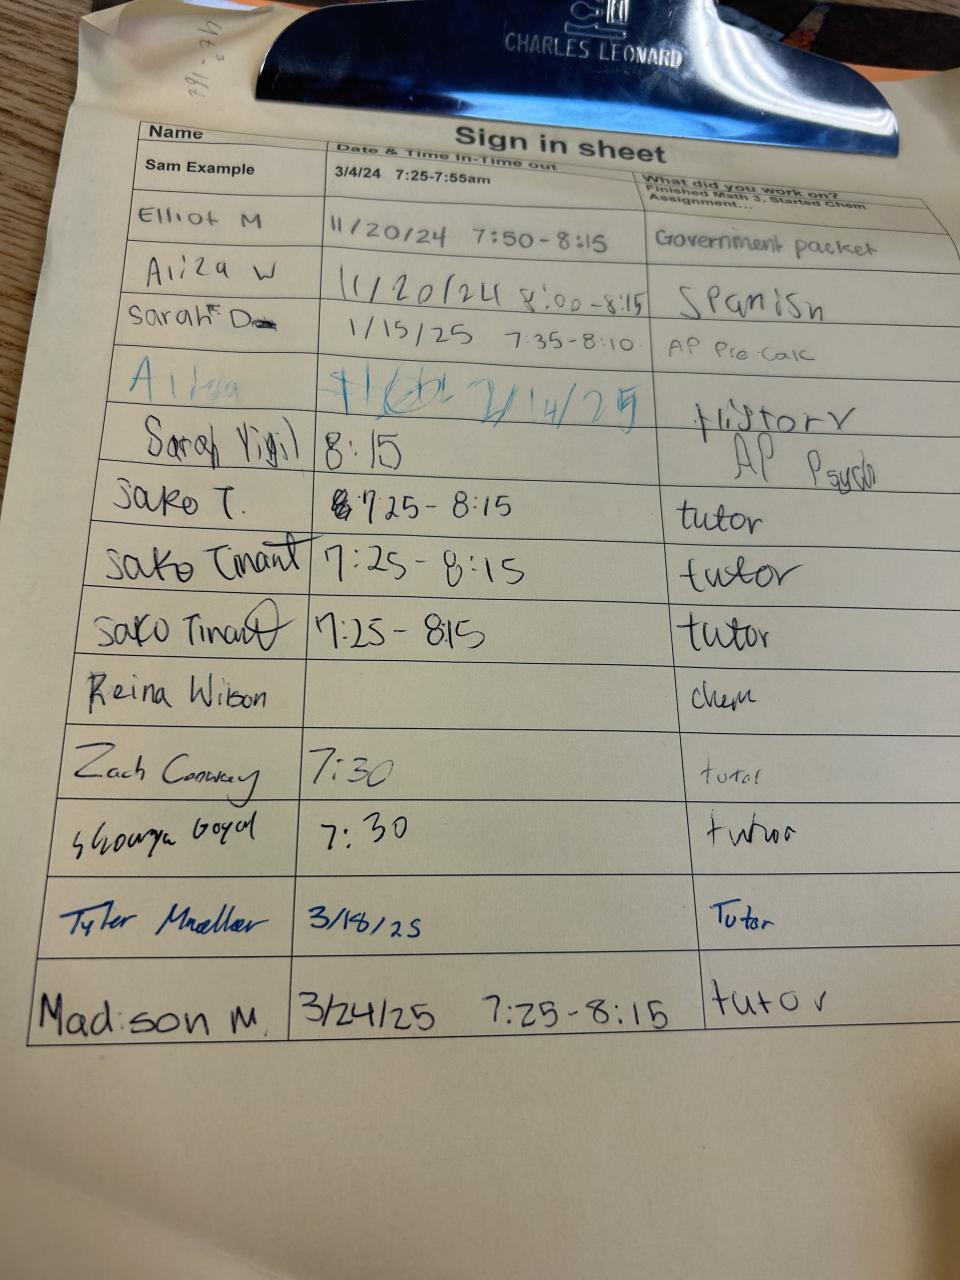 CHARLES LEONARD
Sign in sheet
Name Date & Time In-Time out What did you work on?
Sam Example 3/4/24 7:25-7:55am Finished Math 3, Started Chem Assignment...
Elliot M 11/20/24 7:50-8:15 Government packet
Aliza W 11/20/24 8:00-8:15 Spanish
Sarah D 1/15/25 7:35-8:10 AP Pre-Calc
Aliza 2/14/25 History
Sarah Vigil 8:15 AP Psych
Sako T. 7 25- 8:15 tutor
Sako Tinant 7:25-8:15 tutor
Sako Tinant 7:25- 8:15 tutor
Reina Wilson chem
Zach Conway 7:30 tutor
Shourya Goyal 7:30 tutor
Tyler Mueller 3/18/25 Tutor
Madison M. 3/24/25 7:25-8:15 tutor